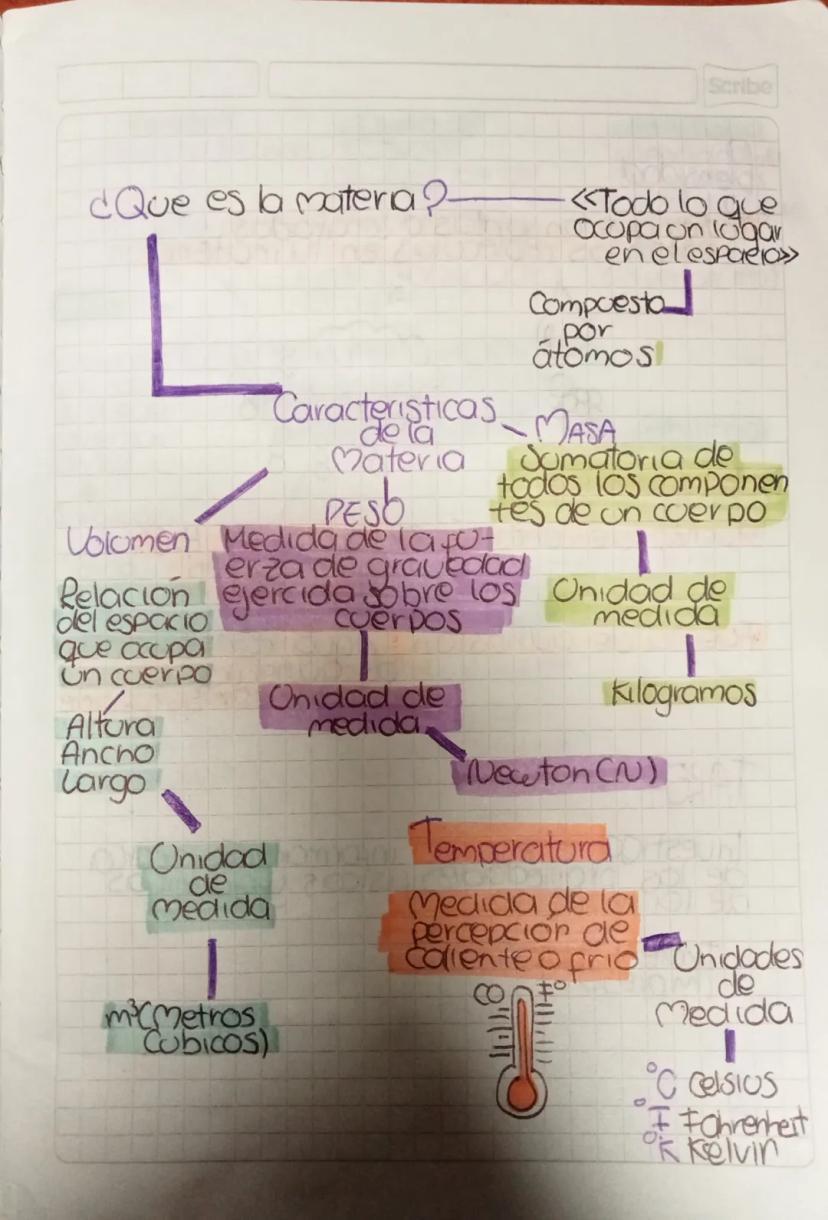 Scribe
¿Que es la materia?
«Todo lo que
ocupa un lugar
en el espacio»
Compuesta
por
átomos
Caracteristicas
de la
Materia
MASA
Sumatoria de
todos los componen
tes de un cuerpo
Unidad de
medida
Kilogramos
PESO
Medida de la fu-
erza de gravedad
ejercida sobre los
cuerpos
Unidad de
medida
Newton (N)
Volumen
Relación
del espacio
que ocupa
un cuerpo
Altura
Ancho
Largo
Unidad
de
medida
m³ (Metros
Cubicos)
Temperatura
Medida de la
percepcion de
caliente o frio
F°
Unidades
de
Medida
°C Celsius
°F Fahrenheit
°K Kelvin